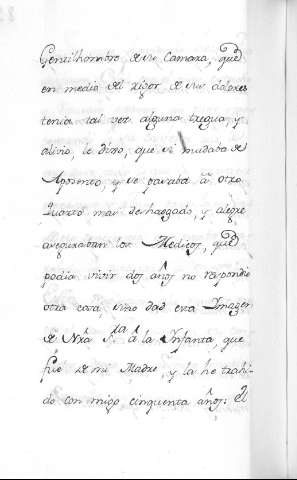 Gentilhombro de su Camara, que
en medio del rigor de sus dolores
tenia tal vez alguna tregua, y
alivio, le dixo, que si mudaba de
Aposento, y se pasaba â otro
Quarto mas deshaogado, y alegre
aseguraban los Medicos, que
podia vivir dos años no respondio
otra cosa, sino dad esa Imagen
de Nra Sra. â la Infanta, que
fué de mi Madre, y la he trahi-
do con migo cinquenta años: el